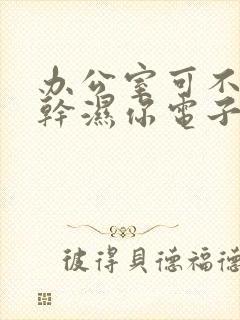 办公室可不
幹濕你電子
彼得貝德福德